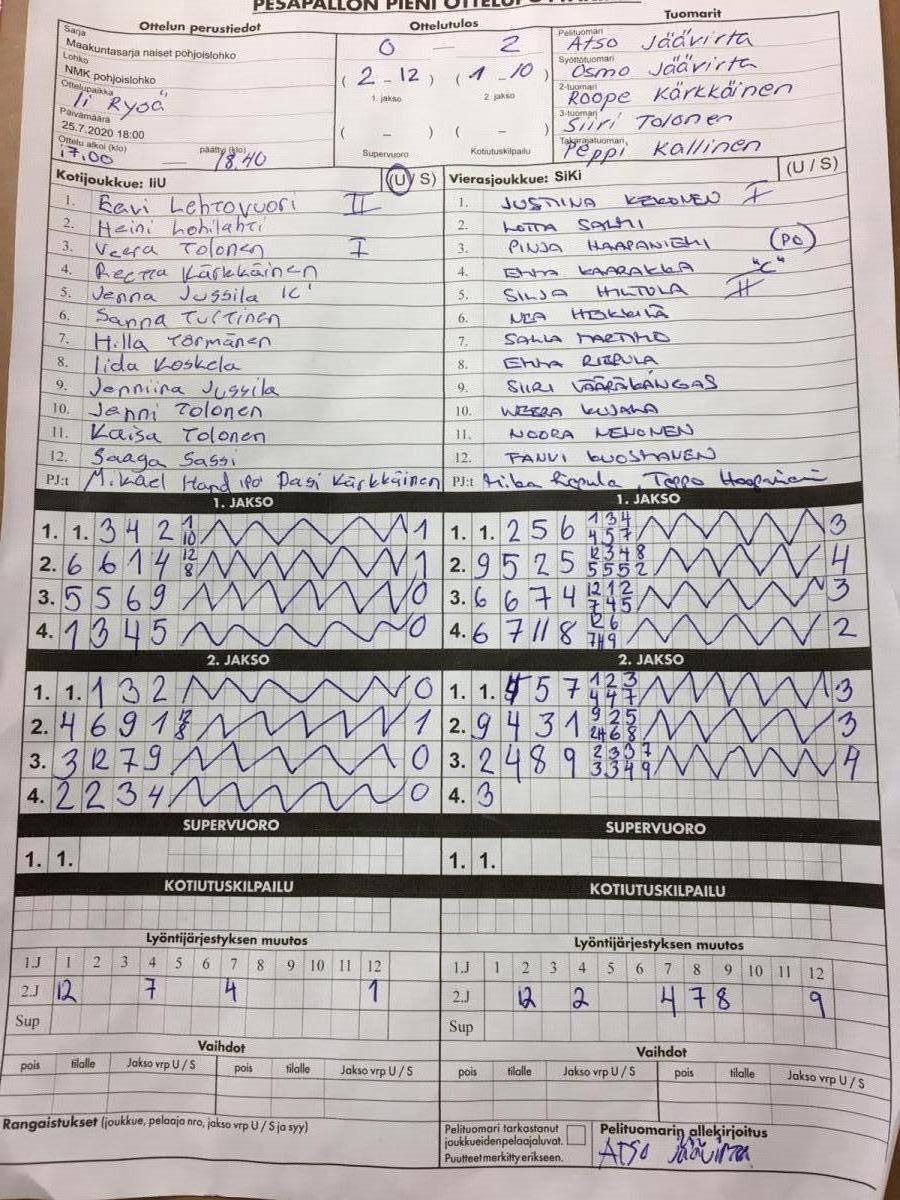 PESÄPALLON PIENI
Ottelun perustiedot
Ottelutulos
Tuomarit
Sarja
Maakuntasarja naiset pohjoislohko
Lohko
NMK pohjoislohko
Ottelupaikka
Ii Rysä
Päivämäärä
25.7.2020 18:00
Ottelu alkoi (klo) päättyi (klo)
17.00 — 18.40
0 — 2
( 2 - 12 ) ( 1 - 10 )
1. jakso 2. jakso
( - ) ( - )
Supervuoro Kotiutuskilpailu
Pelituomari
Atso Jäävirta
Syöttötuomari
Osmo Jäävirta
2-tuomari
Roope Kärkkäinen
3-tuomari
Siiri Tolonen
Takarajatuomari
Peppi Kallinen
Kotijoukkue: IiU (U / S)
1. Eevi Lehtovuori II
2. Heini Lohilahti
3. Veera Tolonen I
4. Reetta Kärkkäinen
5. Jenna Jussila "C"
6. Sanna Tuttinen
7. Hilla Törmänen
8. Iida Koskela
9. Jenniina Jussila
10. Jenni Tolonen
11. Kaisa Tolonen
12. Saaga Sassi
PJ:t Mikael Pasi Kärkkäinen
Vierasjoukkue: SiKi (U / S)
1. JUSTIINA KEKONEN I
2. LOTTA SALMI
3. PINJA HAAPANIEMI (PO)
4. EMMA KAARAKKA "C"
5. SILJA HILTULA II
6. NEA HEIKKILÄ
7. SALLA MARTIMO
8. EMMA RIEPULA
9. SIIRI VÄÄRÄKANGAS
10. WEERA KUJALA
11. NOORA NEVONEN
12. FANNI KUOSMANEN
PJ:t Miika Riepula, Teppo Haapaniemi
1. JAKSO
1. 1. 3 4 2 1 10 1
2. 6 6 1 4 12 8 1
3. 5 5 6 9 0
4. 1 3 4 5 0
1. JAKSO
1. 1. 2 5 6 1 3 4 4 5 7 3
2. 9 5 2 5 12 3 4 8 5 5 5 2 4
3. 6 6 7 4 12 1 2 7 4 5 3
4. 6 7 11 8 12 6 7 11 9 2
2. JAKSO
1. 1. 1 3 2 0
2. 4 6 9 1 12 8 1
3. 3 12 7 9 0
4. 2 2 3 4 0
2. JAKSO
1. 1. 4 5 7 1 2 3 4 4 7 3
2. 9 4 3 1 9 2 5 2 4 6 8 3
3. 2 4 8 9 2 3 3 7 3 3 4 9 4
4. 3
SUPERVUORO
1. 1.
SUPERVUORO
1. 1.
KOTIUTUSKILPAILU
KOTIUTUSKILPAILU
Lyöntijärjestyksen muutos
1.J 1 2 3 4 5 6 7 8 9 10 11 12
2.J 12 7 4 1
Sup
Lyöntijärjestyksen muutos
1.J 1 2 3 4 5 6 7 8 9 10 11 12
2.J 12 2 4 7 8 9
Sup
Vaihdot
pois tilalle Jakso vrp U / S pois tilalle Jakso vrp U / S
Vaihdot
pois tilalle Jakso vrp U / S pois tilalle Jakso vrp U / S
Rangaistukset (joukkue, pelaaja nro, jakso vrp U / S ja syy)
Pelituomari tarkastanut
joukkueidenpelaajaluvat.
Puutteet merkitty erikseen.
Pelituomarin allekirjoitus
Atso Jäävirta